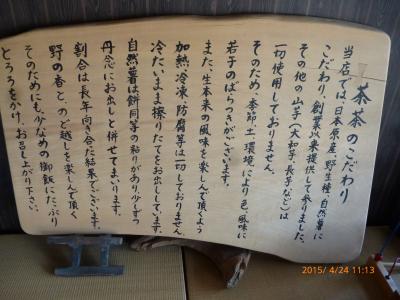 茶茶のこだわり
当店では、日本原産、野生種、自然薯に
こだわり、創業以来提供して参りました。
その他の山芋(大和芋、長芋など)は
一切使用しておりません。
そのため、季節、土、環境により色、風味に
若干のばらつきがございます。
また、生本来の風味を楽しんで頂くよう
加熱、冷凍、防腐等は一切しておりません。
冷たいまま擦りたてをお出ししています。
自然薯は餅同等の粘りがあり、少しずつ
丹念にお出しと併せてまいります。
割合は長年向き合た結果でございます。
野の香と、のど越しを楽しんで頂く
そのためにも少なめの御飯にたっぷり
とろろをかけ、お召し上がり下さい。
2015/ 4/24 11:13